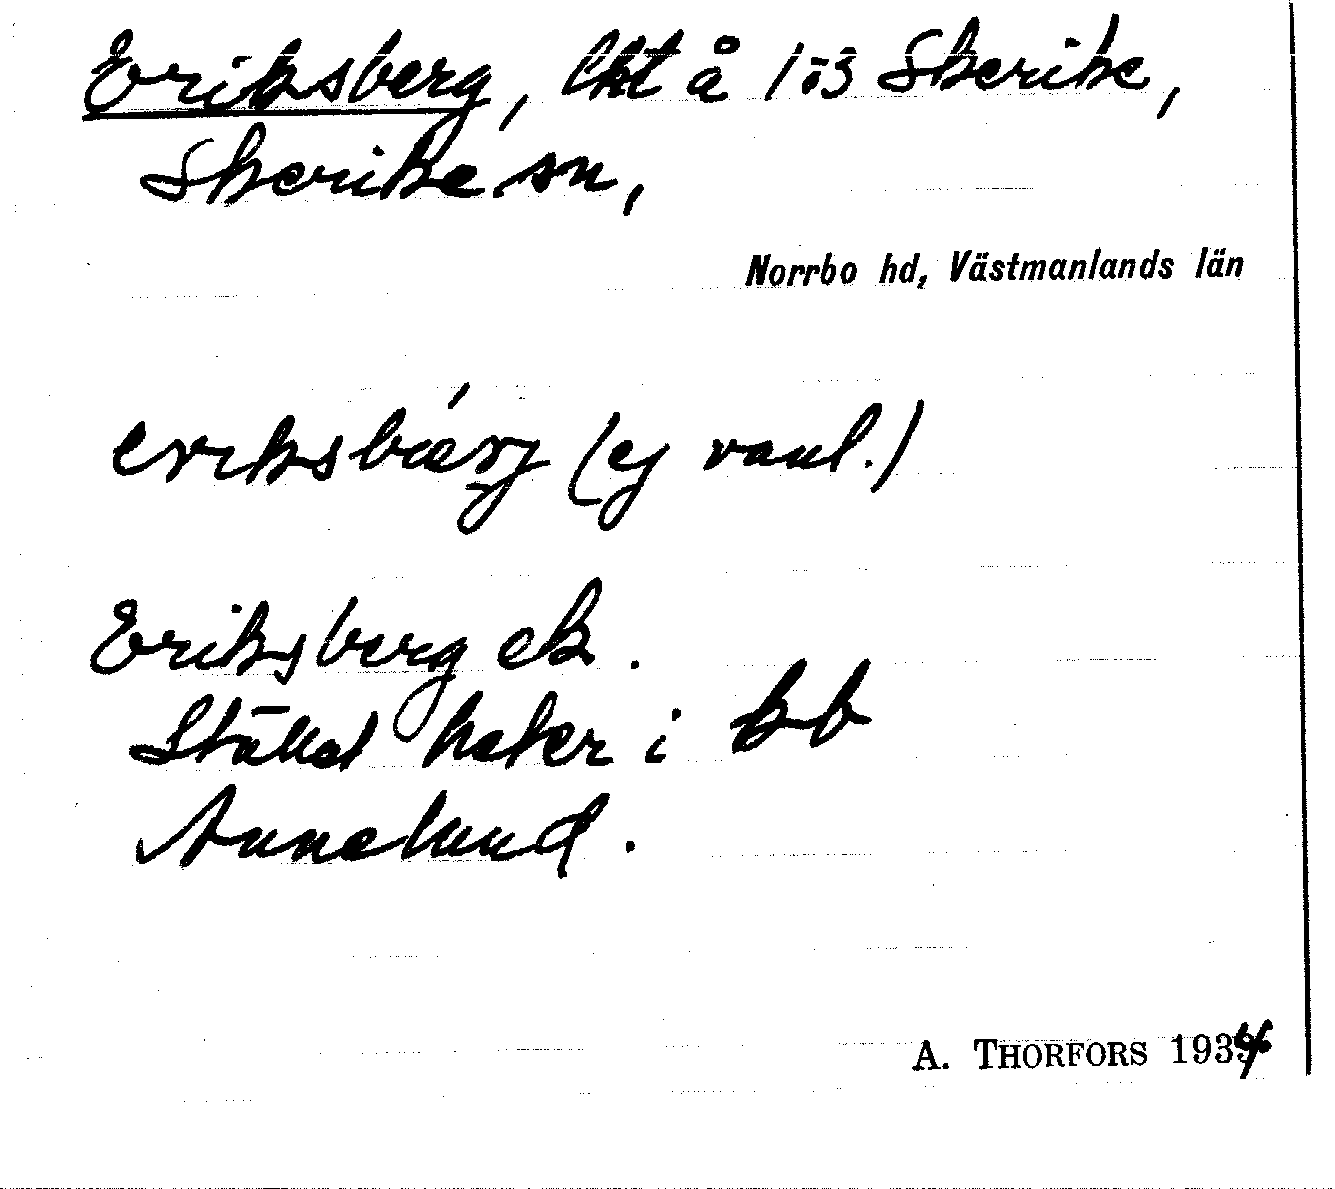 Eriksberg, lht å 1ö3 Skerike,
Skerike sn,
Norrbo hd, Västmanlands län
eriksbærj (ej vanl.)
Eriksberg ek.
Stället heter i kb
Annelund.
A. THORFORS 1934